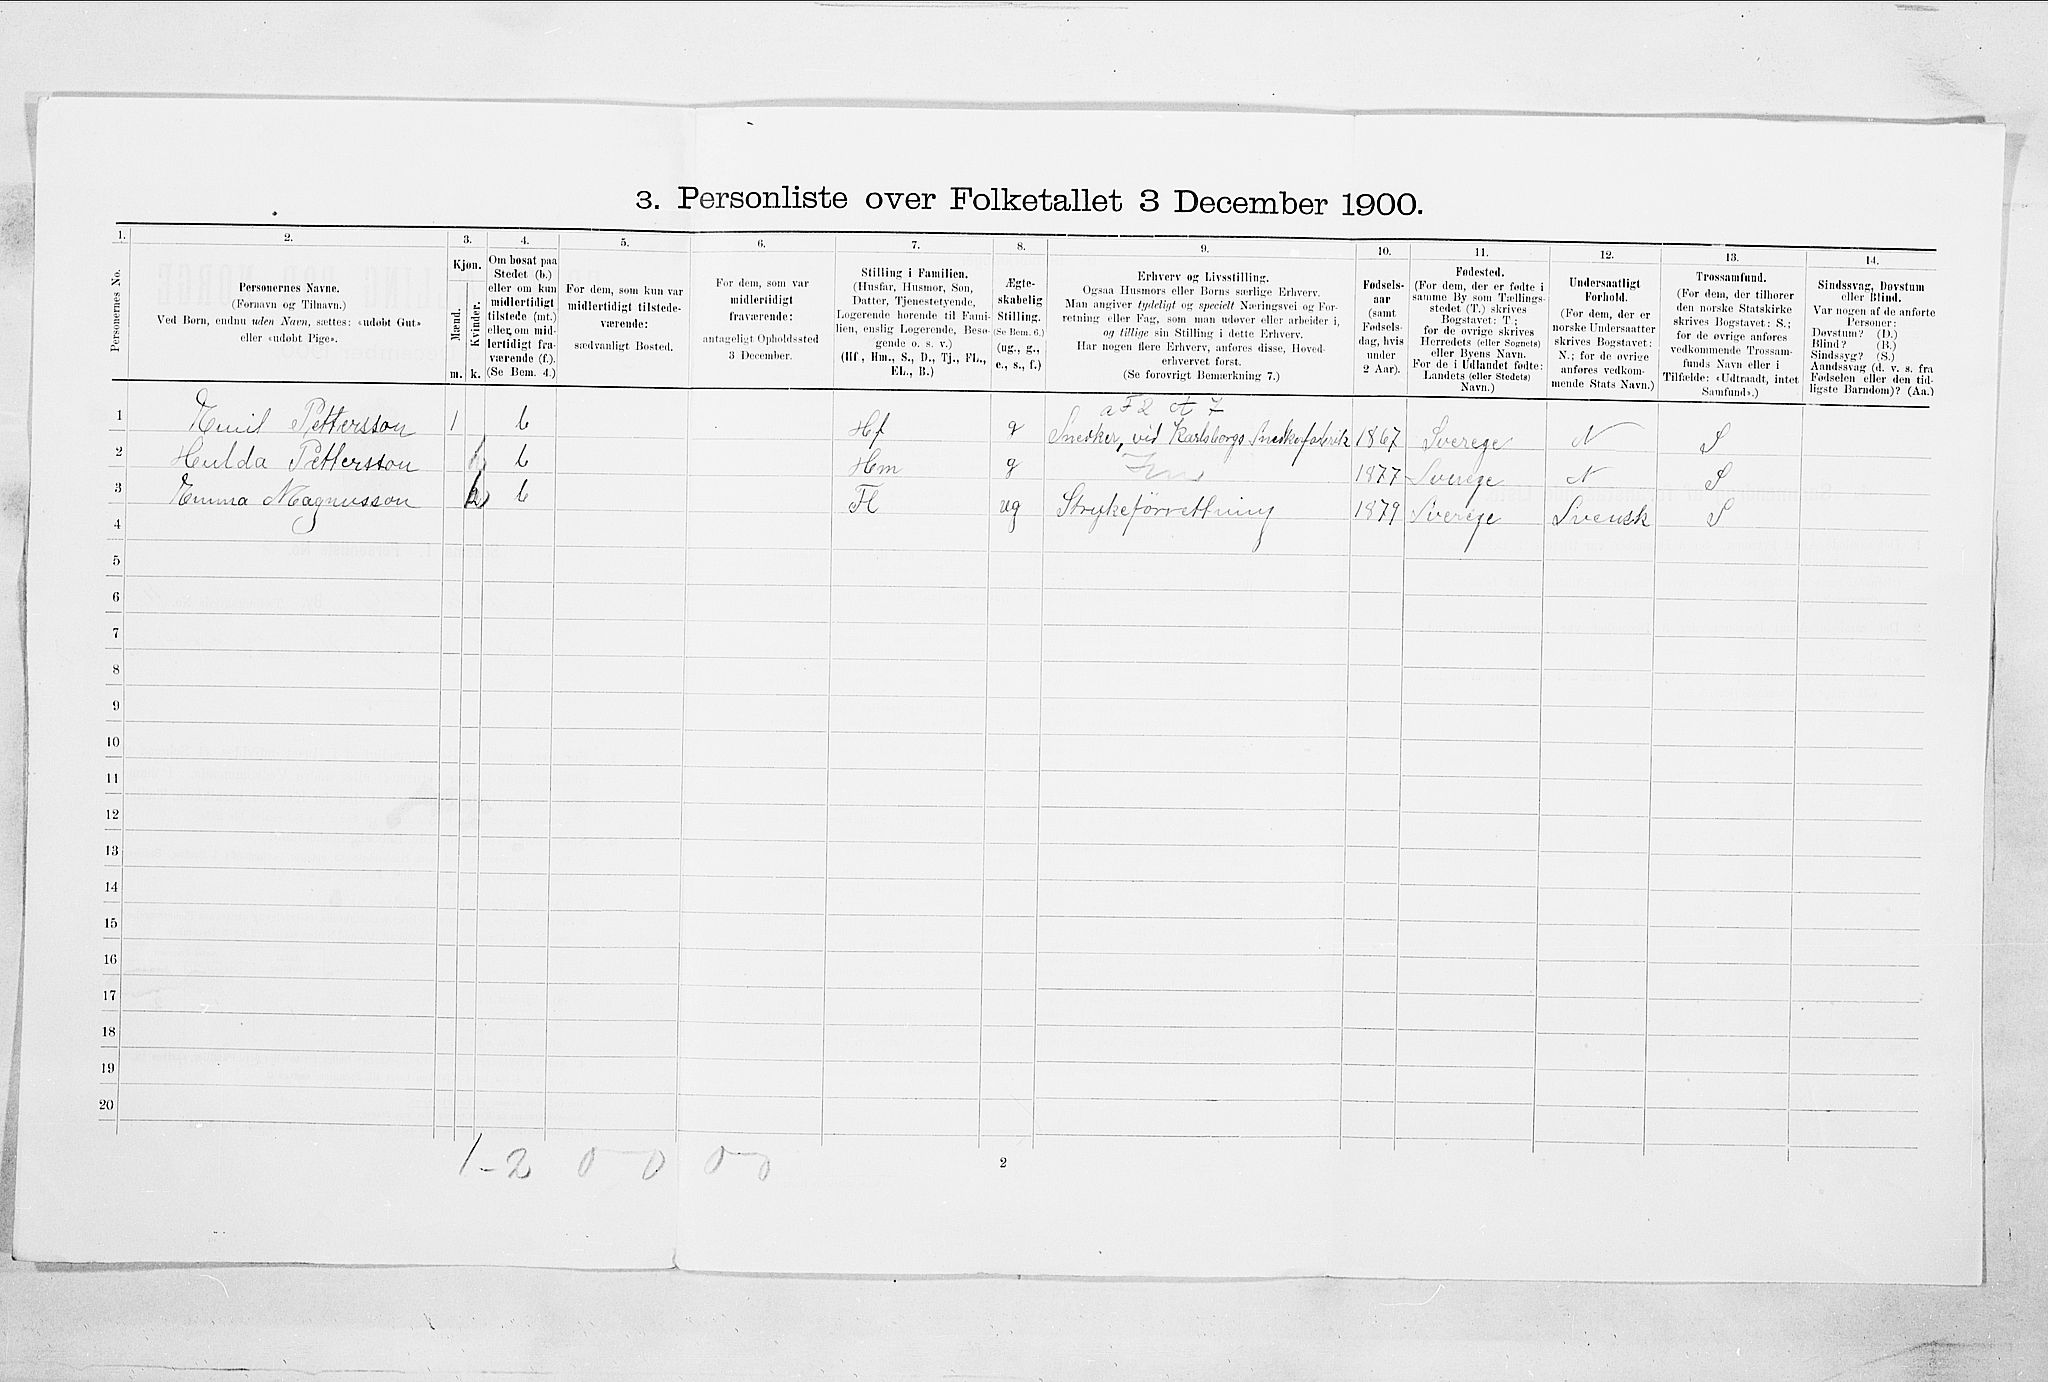 3. Personliste over Folketallet 3 December 1900.
1. 2. 3. 4. 5. 6. 7. 8. 9. 10. 11. 12. 13. 14.
Personernes No.
Personernes Navne.
(Fornavn og Tilnavn.)
Ved Børn, endnu uden Navn, sættes: «udøbt Gut»
eller «udøbt Pige».
Kjøn.
Mænd.
Kvinder.
m. k.
Om bosat paa
Stedet (b.)
eller om kun
midlertidigt
tilstede (mt.)
eller om mid-
lertidigt fra-
værende (f.).
(Se Bem. 4.)
For dem, som kun var
midlertidigt tilstede-
værende:
sædvanligt Bosted.
For dem, som var
midlertidigt
fraværende:
antageligt Opholdssted
3 December.
Stilling i Familien.
(Husfar, Husmor, Søn,
Datter, Tjenestetyende,
Logerende hørende til Fami-
lien, enslig Logerende, Besø-
gende o. s. v.)
(Hf., Hm., S., D., Tj., FL.,
EL., B.)
Ægte-
skabelig
Stilling.
(Se Bem. 6.)
(ug., g.,
e., s., f.)
Erhverv og Livsstilling.
Ogsaa Husmors eller Børns særlige Erhverv.
Man angiver tydeligt og specielt Næringsvei og For-
retning eller Fag, som man udøver eller arbeider i,
og tillige sin Stilling i dette Erhverv.
Har nogen flere Erhverv, anføres disse, Hoved-
erhvervet først.
(Se forøvrigt Bemærkning 7.)
Fødsels-
aar
(samt
Fødsels-
dag, hvis
under
2 Aar).
Fødested.
(For dem, der er fødte i
samme By som Tællings-
stedet (T.) skrives
Bogstavet: T ;
for de øvrige skrives
Herredets (eller Sognets)
eller Byens Navn.
For de i Udlandet fødte:
Landets (eller Stedets)
Navn.)
Undersaatligt
Forhold.
(For dem, der er
norske Undersaatter
skrives Bogstavet:
N.; for de øvrige
anføres vedkom-
mende Stats Navn.)
Trossamfund.
(For dem, der tilhører
den norske Statskirke
skrives Bogstavet: S.;
for de øvrige anføres
vedkommende Trossam-
funds Navn eller i
Tilfælde: «Udtraadt, intet
Samfund».)
Sindssvag, Døvstum
eller Blind.
Var nogen af de anførte
Personer:
Døvstum? (D.)
Blind? (B.)
Sindssyg? (S.)
Aandssvag (d. v. s. fra
Fødselen eller den tid-
ligste Barndom)? (Aa.)
1 Emil Pettersson 1 b Hf g Snedker, vid Karlsborgs Snedkerfabrik 1867 Sverege N S
2 Hulda Pettersson b Hm g 1877 Sverege N S
3 Emma Magnusson b Fl ug Strykeförrettning 1879 Sverege Svensk S
4
5
6
7
8
9
10
11
12
13
14
15
16
17
18
19
20
1-2 0-0 0-0
2